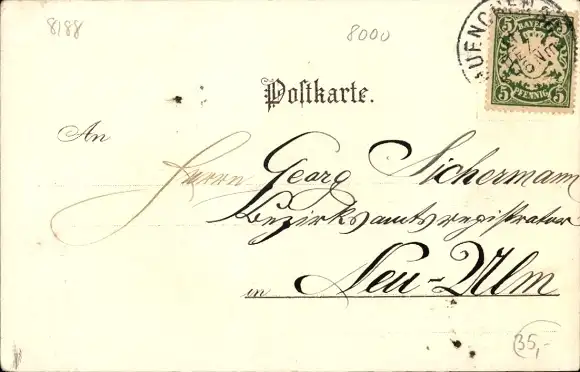 8188
8000
MUENCHEN
5 BAYERN 5
5 PFENNIG 5
Postkarte.
An
Herrn Georg Sichermann
Bezirksamtsregistrator
in Neu-Ulm
35,-